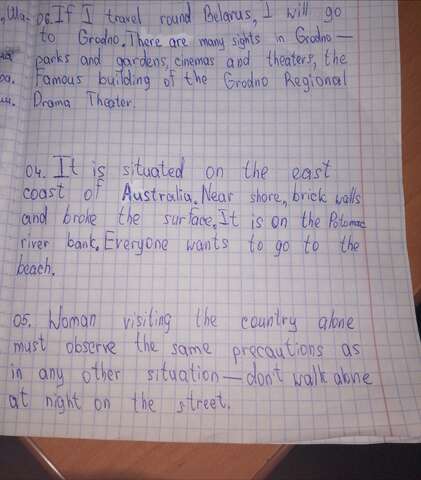 06. If I travel round Belarus, I will go
to Grodno. There are many sights in Grodno —
parks and gardens, cinemas and theaters, the
Famous building of the Grodno Regional
Drama Theater.
04. It is situated on the east
coast of Australia. Near shore, brick walls
and broke the surface. It is on the Potomac
river bank. Everyone wants to go to the
beach.
05. Woman visiting the country alone
must observe the same precautions as
in any other situation — don't walk alone
at night on the street.